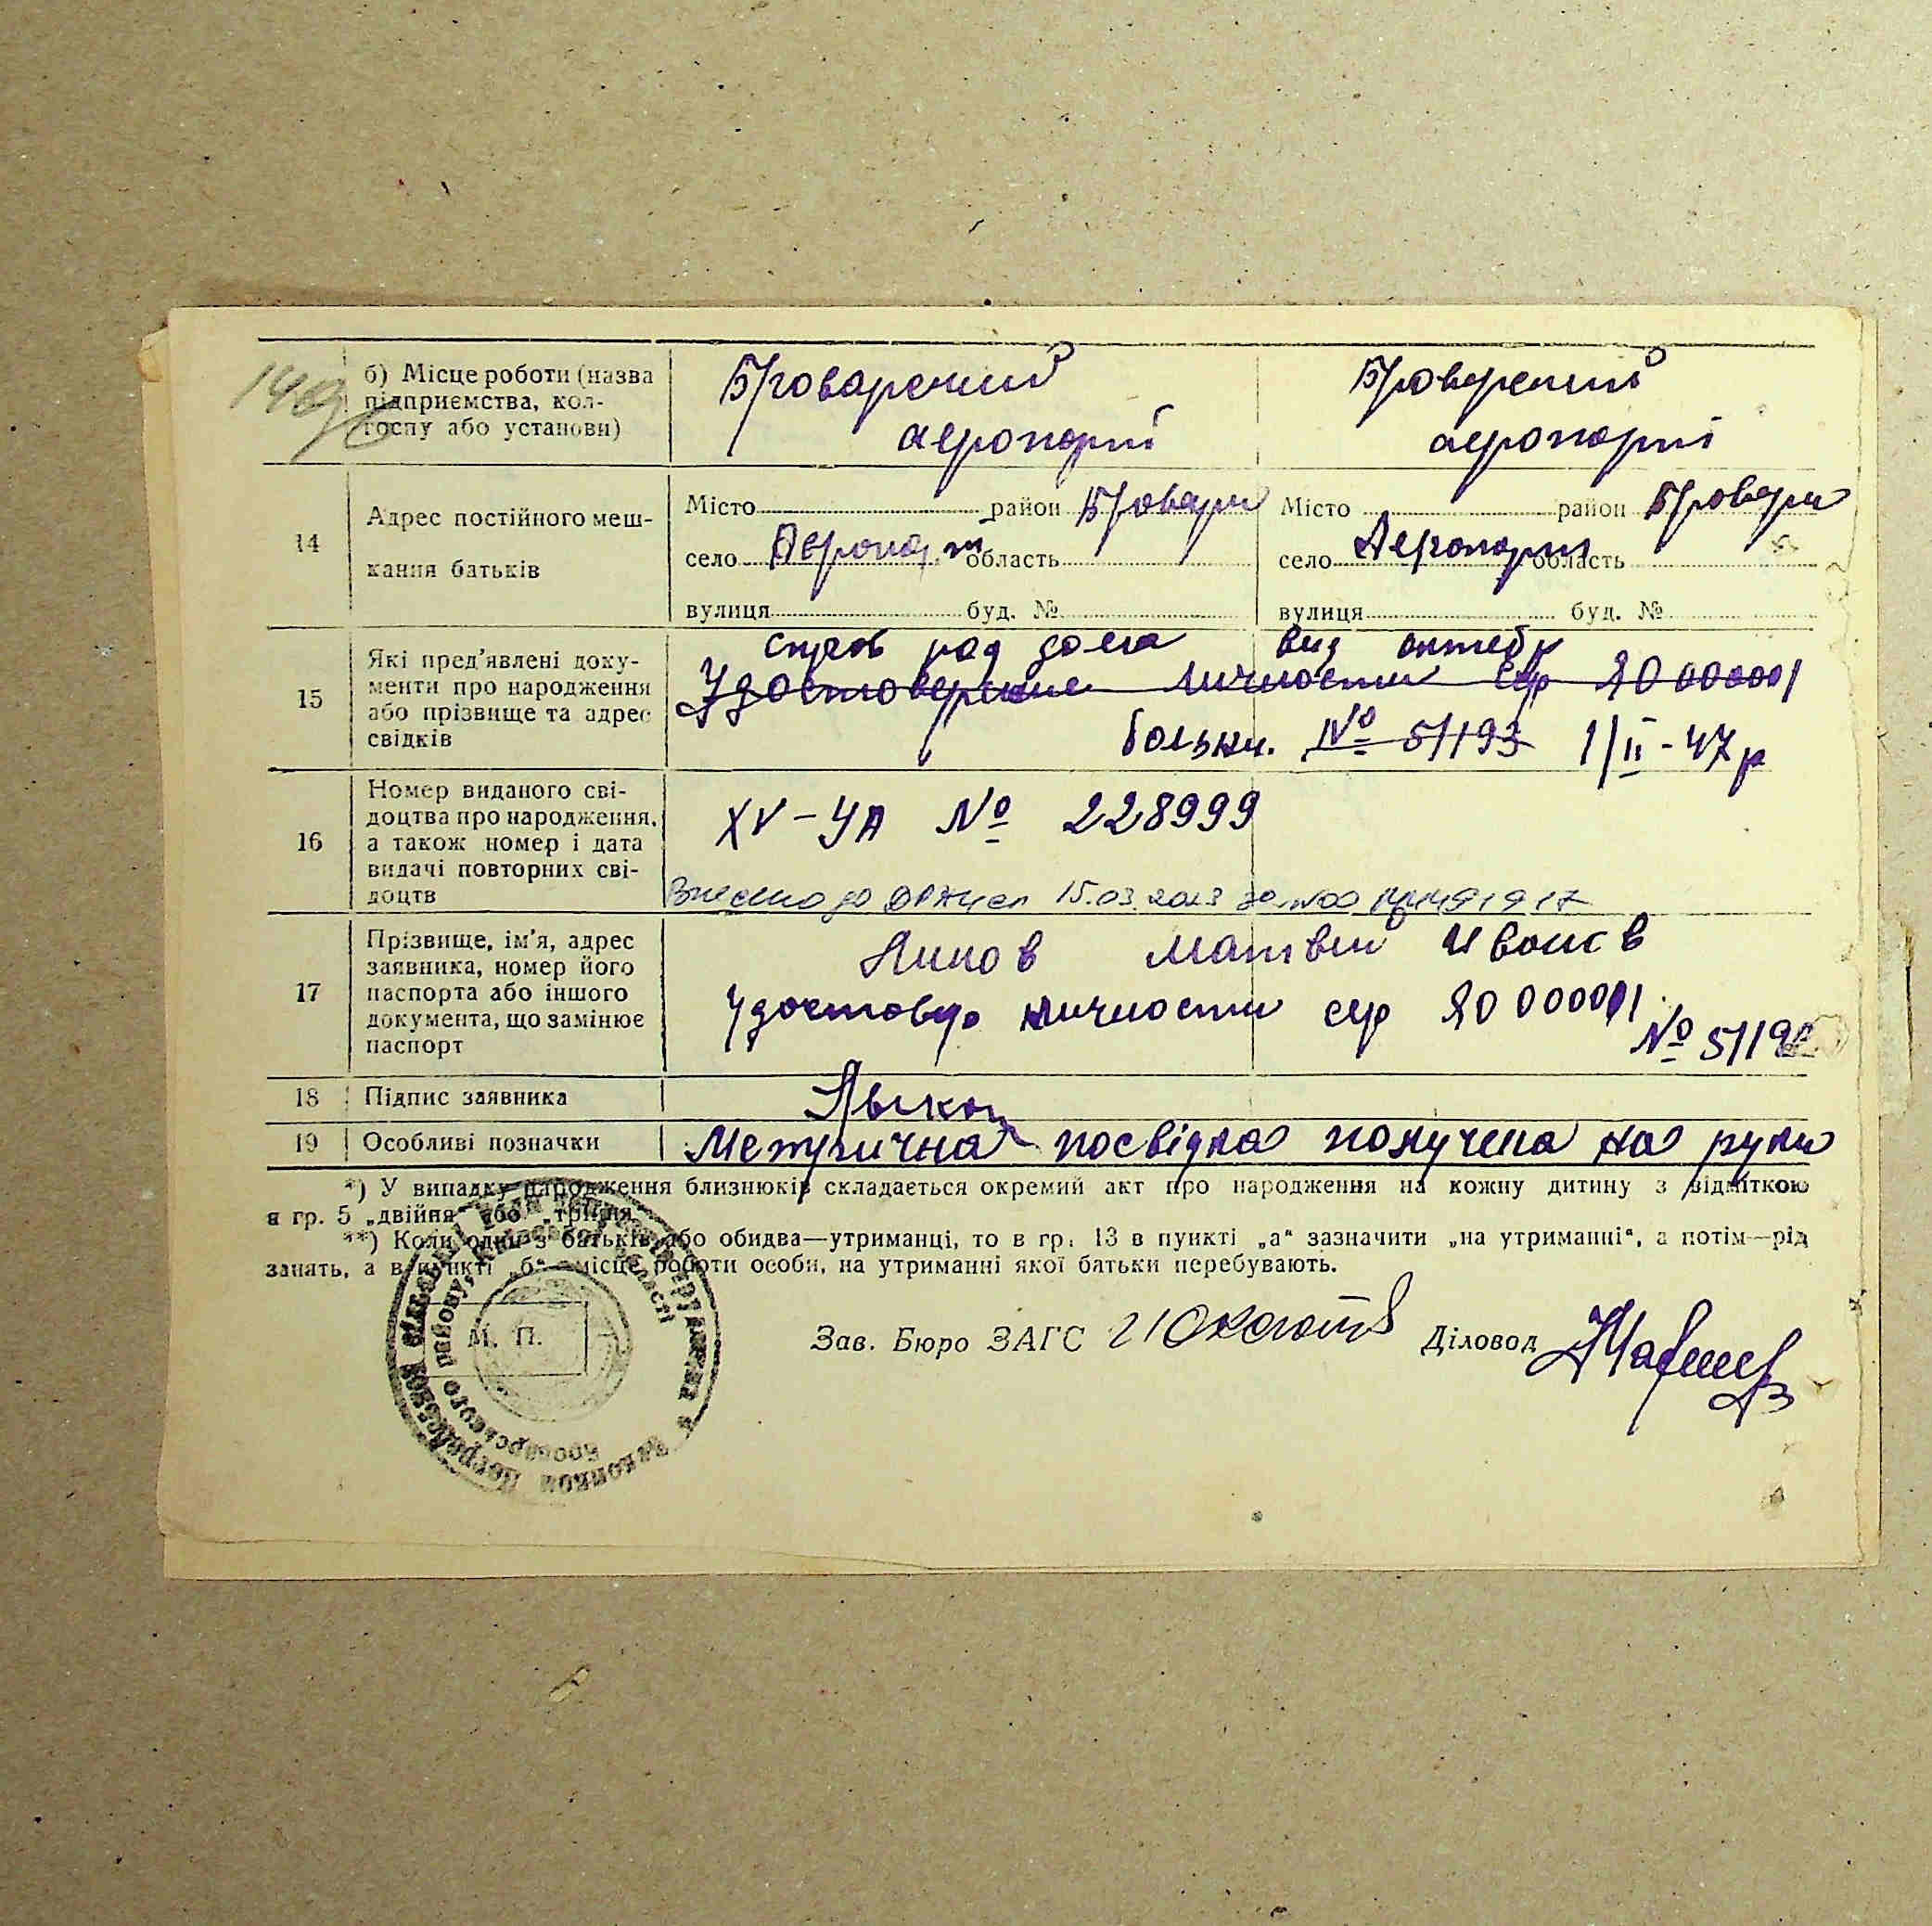 149
б) Місце роботи (назва
підприємства, кол-
госпу або установи)
Броварський
аеропорт
Броварский
аеропорт
14
Адрес постійного меш-
кання батьків
Місто район Бровари
село Аеропорт область
вулиця буд. №
Місто район Бровари
село Аеропорт область
вулиця буд. №
15
Які пред'явлені доку-
менти про народження
або прізвище та адрес
свідків
справ род дома
Удостоверение личности сер ЯО 000001
больн. № 51193 1/II-47 р
16
Номер виданого сві-
доцтва про народження,
а також номер і дата
видачі повторних сві-
доцтв
XV-УА № 228999
Внесено до 15.03.2023 за №00
17
Прізвище, ім'я, адрес
заявника, номер його
паспорта або іншого
документа, що замінює
паспорт
Матвій
Удостовер личности сер ЯО 000001
№ 5119
18
Підпис заявника
19
Особливі позначки
Метрична посвідка получена на руки
*) У випадку народження близнюків складається окремий акт про народження на кожну дитину з відміткою
в гр. 5 „двійня“ або „трійня“
**) Коли один з батьків або обидва—утриманці, то в гр. 13 в пункті „а“ зазначити „на утриманні“, а потім—рід
занять, а в пункті „б“ — місце роботи особи, на утриманні якої батьки перебувають.
М. П.
Зав. Бюро ЗАГС
Діловод